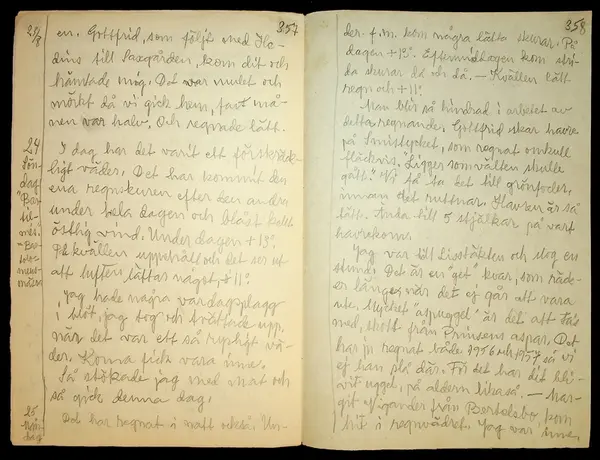 357
23/8
en. Gottfrid, som följt med Ho-
dius till Saxgården, kom dit och
hämtade mig. Det var mulet och
mörkt då vi gick hem, fast må-
nen var halv. Och regnade lätt.
24
Sön-
dag
I dag har det varit ett förskräck-
ligt väder. Det har kommit den
ena regnskuren efter den andra
under hela dagen och blåst kallt
östlig wind. Under dagen +13°.
På kvällen uppehåll och det ser ut
att luften lättar något, +11°.
Jag hade några vardagsplagg
i blöt, jag tog och tvättade upp,
när det var ett så rysligt vä-
der. Korna fick vara inne.
Så stökade jag med mat och
så gick denna dag.
25
Mån-
dag
Det har regnat i natt också. Un-
358
der f.m. kom några lätta skurar. På
dagen +13°. Eftermiddagen kom stri-
da skurar då och då. — Kvällen lätt
regn och +11°.
Man blir så hindrad i arbetet av
detta regnande. Gottfrid skear havre
på Smistycket, som regnat omkull
fläckvis. "Ligger som välten skulle
gått." Vi få ta det till grönfoder,
innan det ruttnar. Havren är så
lätt. Anka till 5 stjälkar på vart
havrekorn.
Jag var till Lisstäkten och slog en
stund. Det är en get kvar, som räck-
er länge, när det ej går att vara
ute. Mycket "aspuggel" är det att tas
med, skott från Prinsens aspar. Det
har ju regnat både 1956 och 1957 så vi
ej han slå där. För det har det bli-
vit uggel, på aldern likaså. — Mar-
git Vigander från Bertelsbo, kom
hit i regnvädret. Jag var inne,